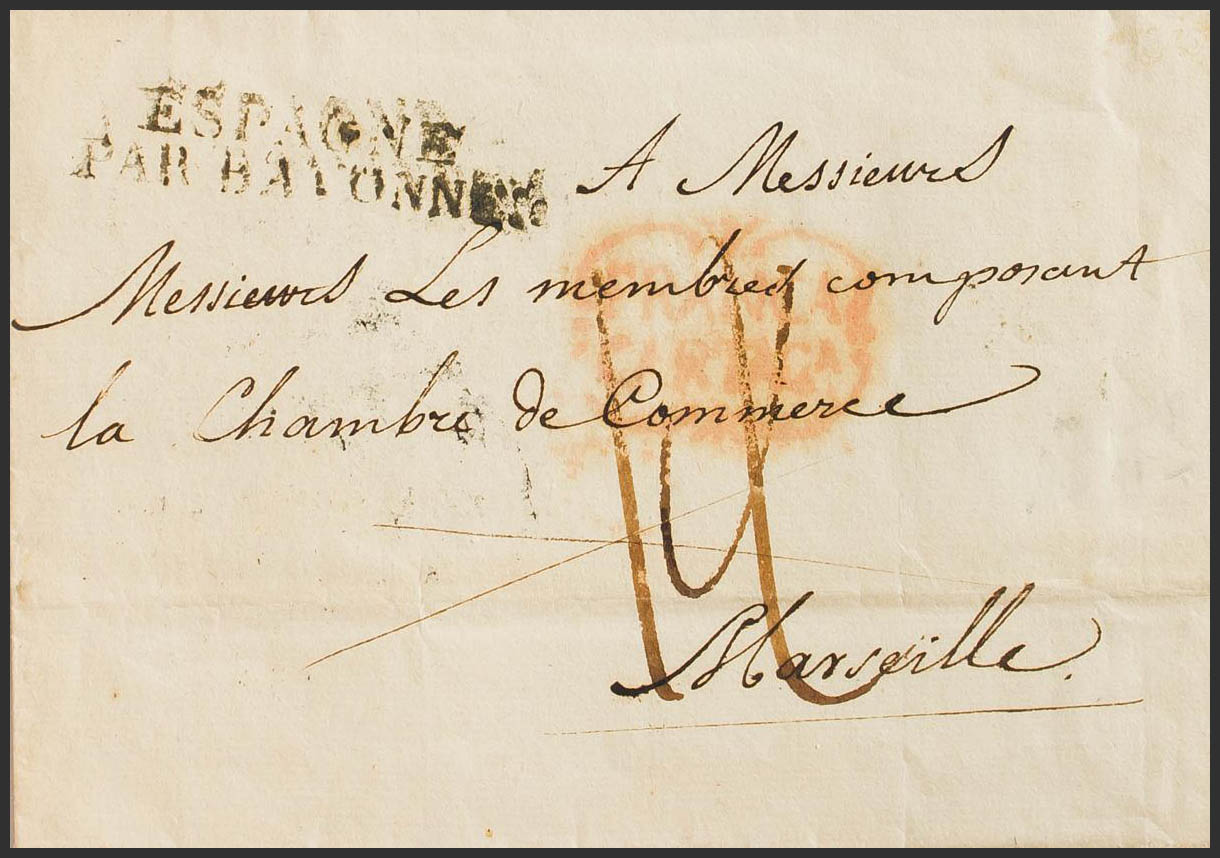 ESPAGNE
PAR BAYONNE
A Messieurs
Messieurs Les membres composant
la Chambre de Commerce
Marseïlle.